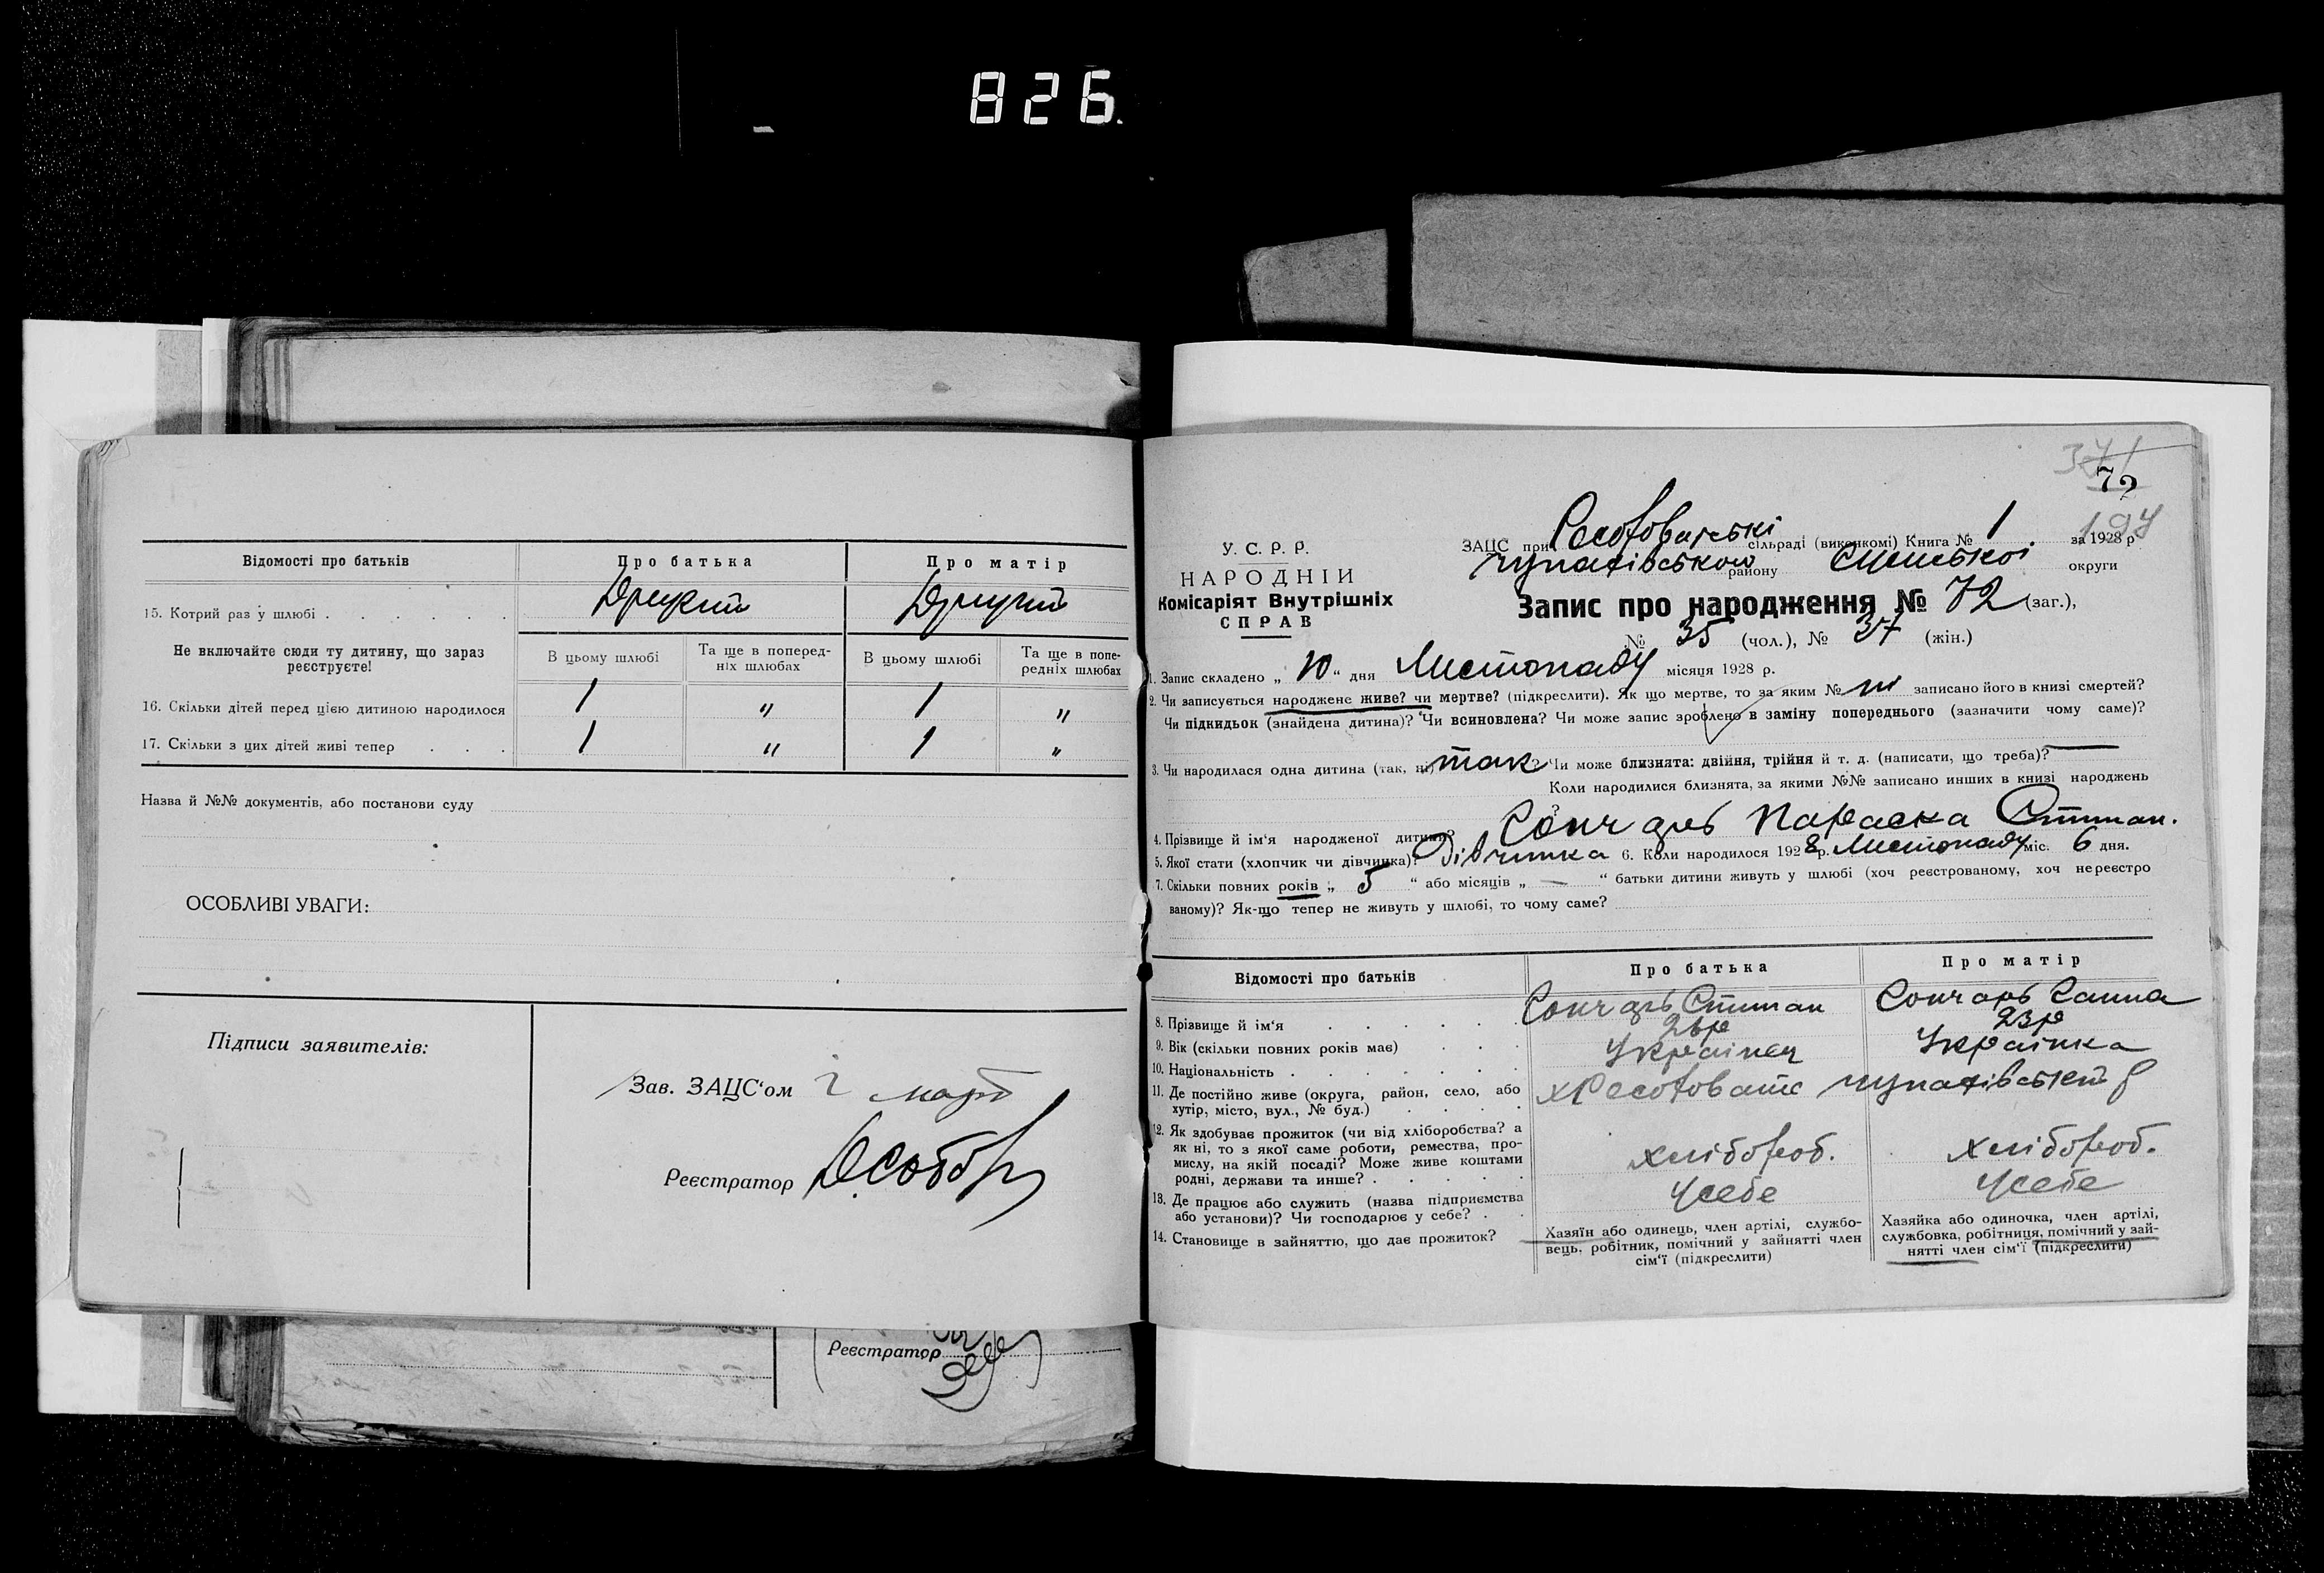 826.
Відомості про батьків
Про батька
Про матір
15. Котрий раз у шлюбі
Не включайте сюди ту дитину, що зараз
реєструєте!
В цьому шлюбі
Та ще в поперед-
ніх шлюбах
В цьому шлюбі
Та ще в попе-
редніх шлюбах
16. Скільки дітей перед цією дитиною народилося 1 " 1 "
17. Скільки з цих дітей живі тепер . . . 1 " 1 "
Назва й №№ документів, або постанови суду
ОСОБЛИВІ УВАГИ:
Підписи заявителів:
Зав. ЗАЦС'ом
Реєстратор
Реєстратор
371
72
197
У. С. Р. Р.
НАРОДНІЙ
Комісаріят Внутрішніх
СПРАВ
ЗАЦС при сільраді (виконкомі) Книга № 1 за 1928 р
Чупахівського району Сумської округи
Запис про народження № 72 (заг.),
№ 35 (чол.), № 37 (жін.)
1. Запис складено „ 10 “ дня Листопаду місяця 1928 р.
2. Чи записується народжене живе? чи мертве? (підкреслити). Як що мертве, то за яким № ні записано його в книзі смертей?
Чи підкидьок (знайдена дитина)? Чи всиновлена? Чи може запис зроблено в заміну попереднього (зазначити чому саме)?
3. Чи народилася одна дитина (так, ні) так ? Чи може близнята: двійня, трійня й т. д. (написати, що треба)? —
Коли народилися близнята, за якими №№ записано инших в книзі народжень
?
4. Прізвище й ім'я народженої дитини? Гончарь Параска Стипан.
5. Якої стати (хлопчик чи дівчинка)? Дівчинка 6. Коли народилося 1928 р. Листопаду міс. 6 дня.
7. Скільки повних років „ 5 “ або місяців „ — “ батьки дитини живуть у шлюбі (хоч реєстрованому, хоч нереєстро
ваному)? Як-що тепер не живуть у шлюбі, то чому саме?
Відомості про батьків
Про батька
Про матір
8. Прізвище й ім'я . . . . . Гончарь Стипан Гончарь Ганна
9. Вік (скільки повних років має) . . . 26р 23р
10. Національність . . . . . . . Українец Українка
11. Де постійно живе (округа, район, село, або
хутір, місто, вул., № буд.)
12. Як здобуває прожиток (чи від хліборобства? а
як ні, то з якої саме роботи, ремества, про-
мислу, на якій посаді? Може живе коштами
родні, держави та инше? . . . . .
хлібороб. хлібороб.
13. Де працює або служить (назва підприємства
або установи)? Чи господарює у себе? . .
Усебе Усебе
14. Становище в зайняттю, що дає прожиток?
Хазяїн або одинець, член артілі, службо-
вець, робітник, помічний у зайнятті член
сім'ї (підкреслити)
Хазяйка або одиночка, член артілі,
службовка, робітниця, помічний у зай-
нятті член сім'ї (підкреслити)